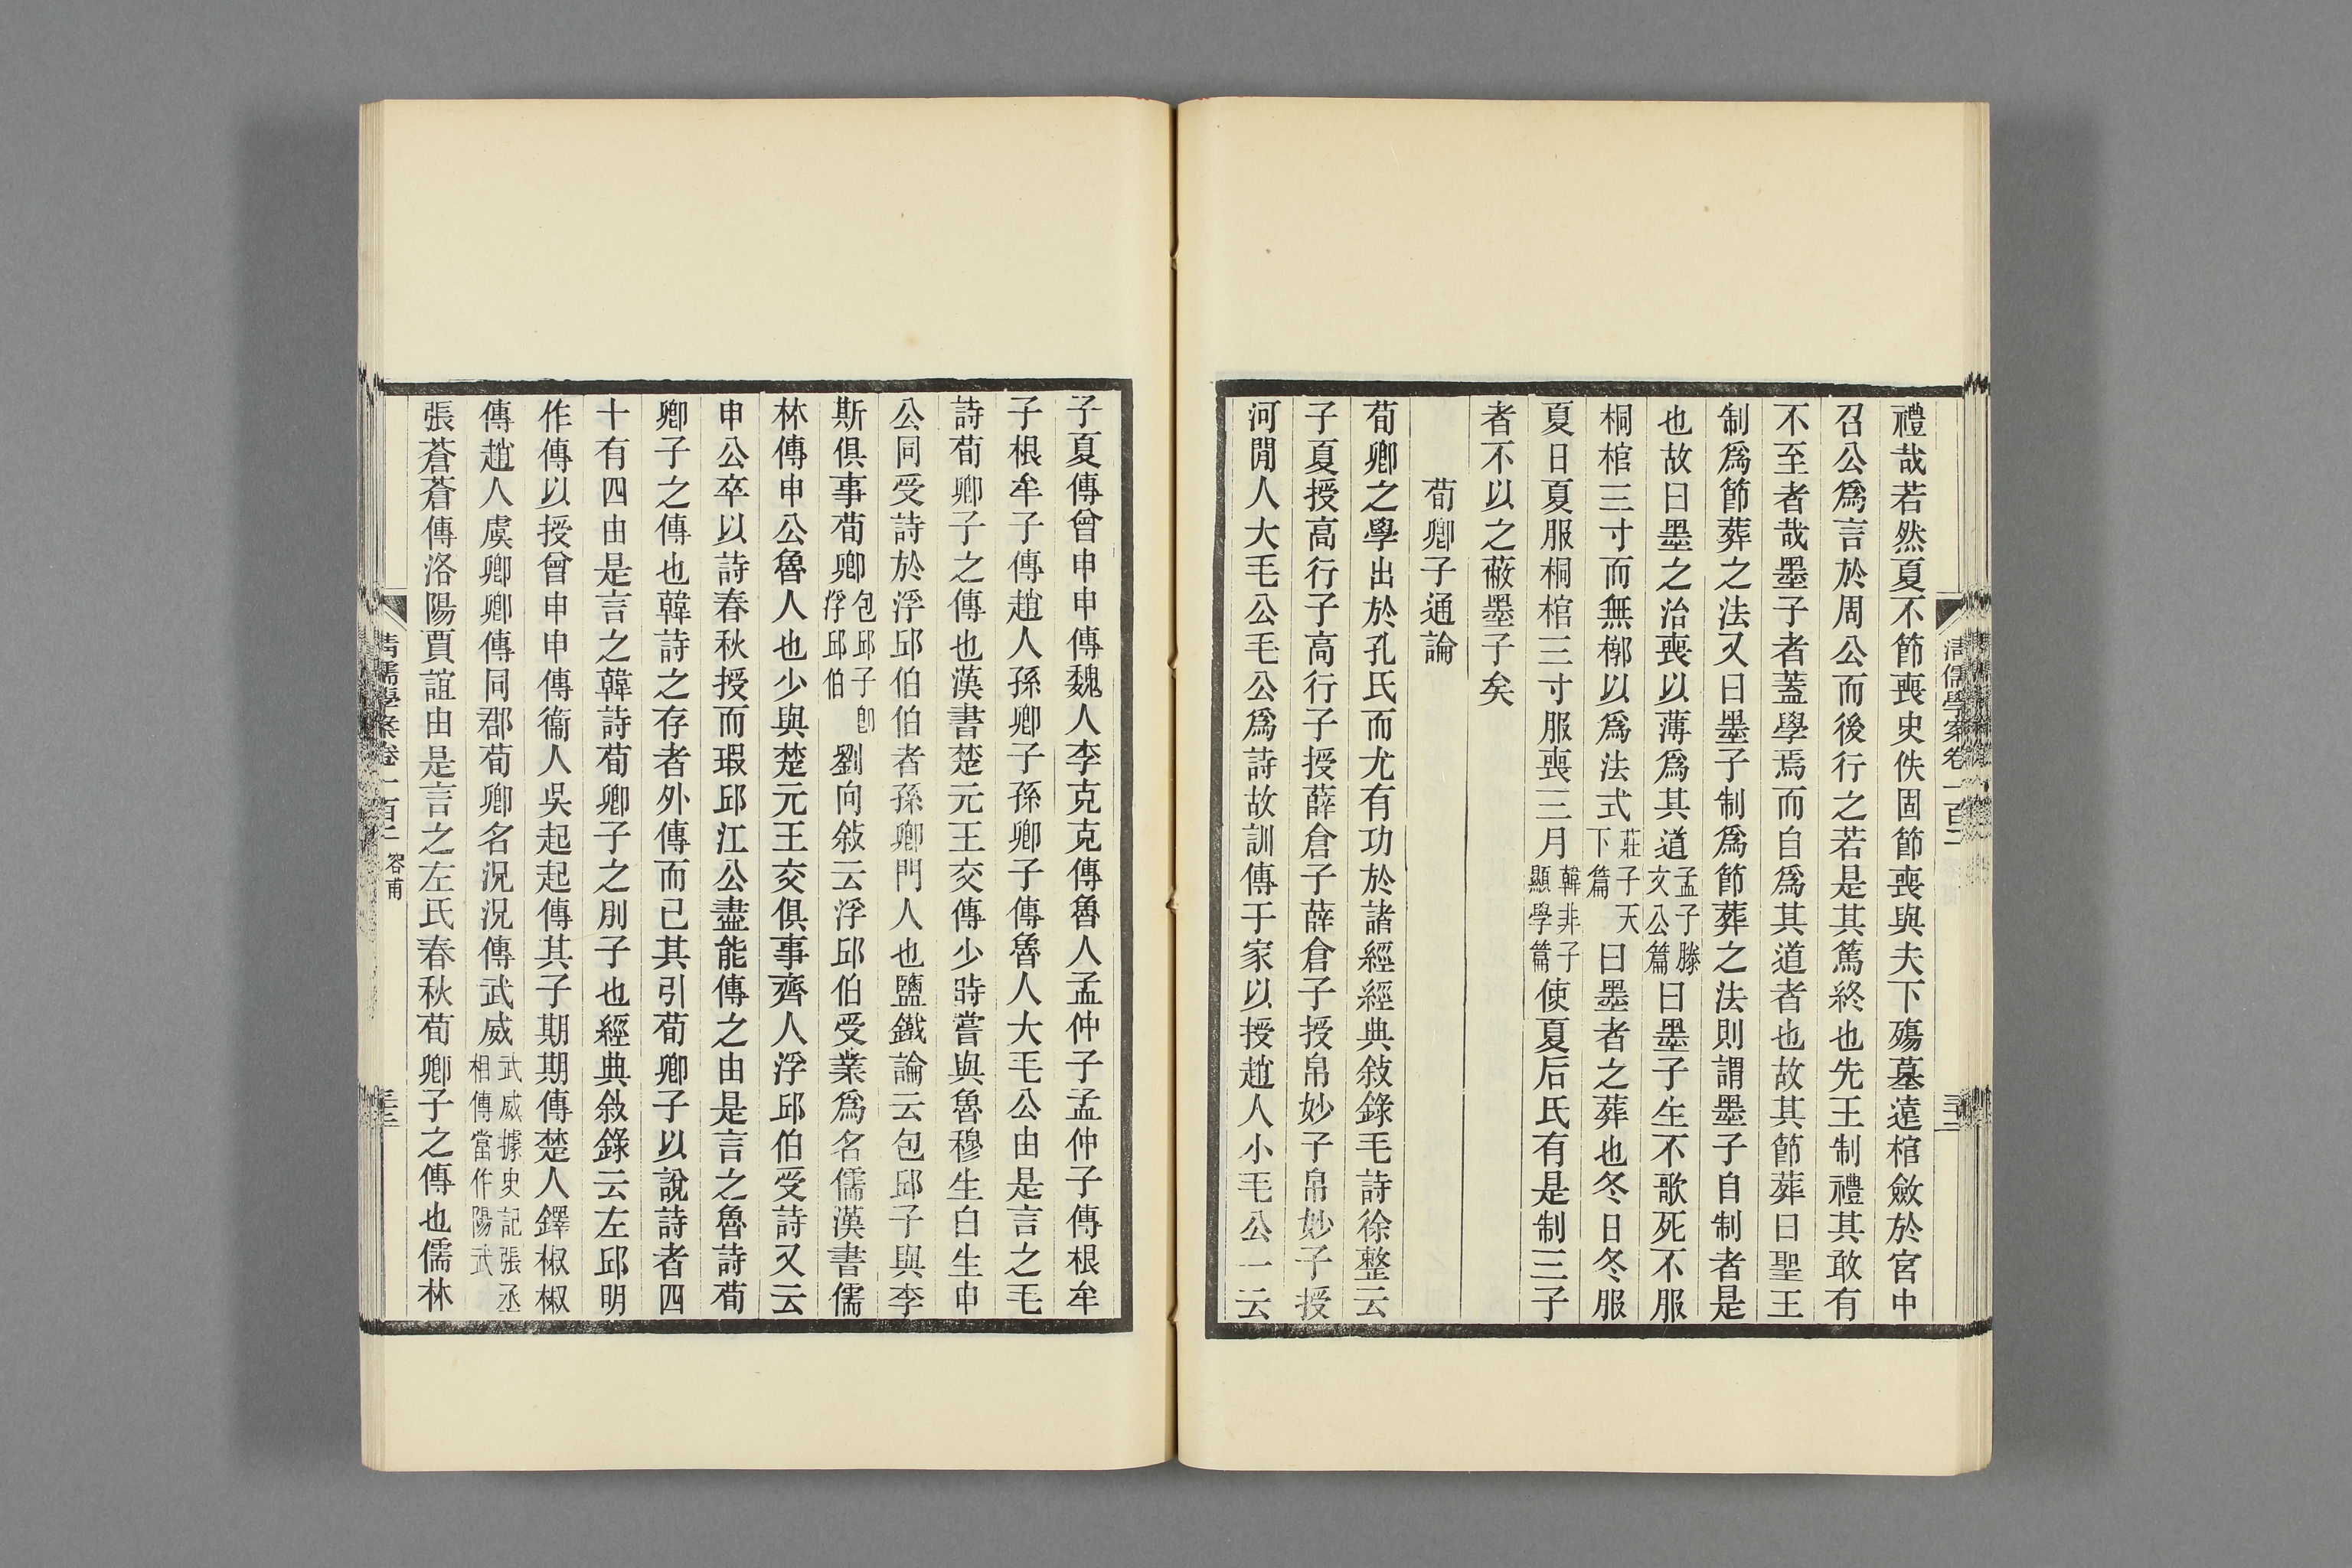 清儒學案卷一百二
禮哉若然夏不節喪史佚固節喪與夫下殤墓遠棺斂於宮中
召公爲言於周公而後行之若是其篤終也先王制禮其敢有
不至者哉墨子者蓋學焉而自爲其道者也故其節葬曰聖王
制爲節葬之法又曰墨子制爲節葬之法則謂墨子自制者是
也故曰墨之治喪以薄爲其道孟子滕文公篇曰墨子生不歌死不服
桐棺三寸而無槨以爲法式莊子天下篇曰墨者之葬也冬日冬服
夏日夏服桐棺三寸服喪三月韓非子顯學篇使夏后氏有是制三子
者不以之蔽墨子矣
荀卿子通論
荀卿之學出於孔氏而尤有功於諸經經典敍錄毛詩徐整云
子夏授高行子高行子授薛倉子薛倉子授帛妙子帛妙子授
河閒人大毛公毛公爲詩故訓傳于家以授趙人小毛公一云
子夏傳曾申申傳魏人李克克傳魯人孟仲子孟仲子傳根牟
子根牟子傳趙人孫卿子孫卿子傳魯人大毛公由是言之毛
詩荀卿子之傳也漢書楚元王交傳少時嘗與魯穆生白生申
公同受詩於浮邱伯伯者孫卿門人也鹽鐵論云包邱子與李
斯俱事荀卿包邱子卽浮邱伯劉向敍云浮邱伯受業爲名儒漢書儒
林傳申公魯人也少與楚元王交俱事齊人浮邱伯受詩又云
申公卒以詩春秋授而瑕邱江公盡能傳之由是言之魯詩荀
卿子之傳也韓詩之存者外傳而已其引荀卿子以說詩者四
十有四由是言之韓詩荀卿子之別子也經典敍錄云左邱明
作傳以授曾申申傳衞人吳起起傳其子期期傳楚人鐸椒椒
傳趙人虞卿卿傳同郡荀卿名況況傳武威武威據史記張丞相傳當作陽武
張蒼蒼傳洛陽賈誼由是言之左氏春秋荀卿子之傳也儒林
清儒學案卷一百二 容甫